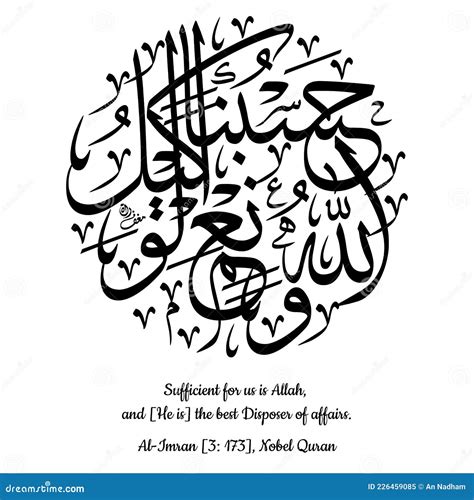 حسبنا الله ونعم الوكيل
Sufficient for us is Allah,
and [He is] the best Disposer of affairs.
Al-Imran [3: 173], Nobel Quran
dreamstime.com
ID 226459085 © An Nadham